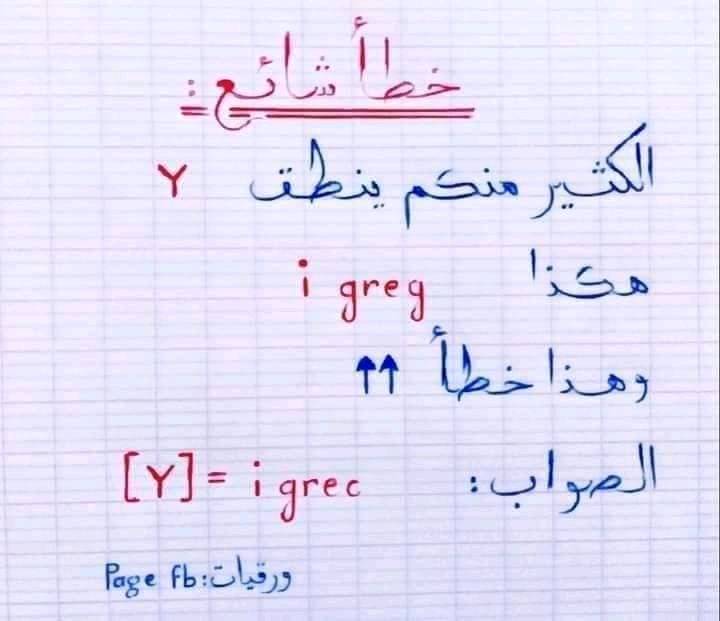 خطأ شائع :
الكثير منكم ينطق Y
هكذا i greg
وهذا خطأ ↑↑
الصواب: [Y] = i grec
Page fb: ورقيات